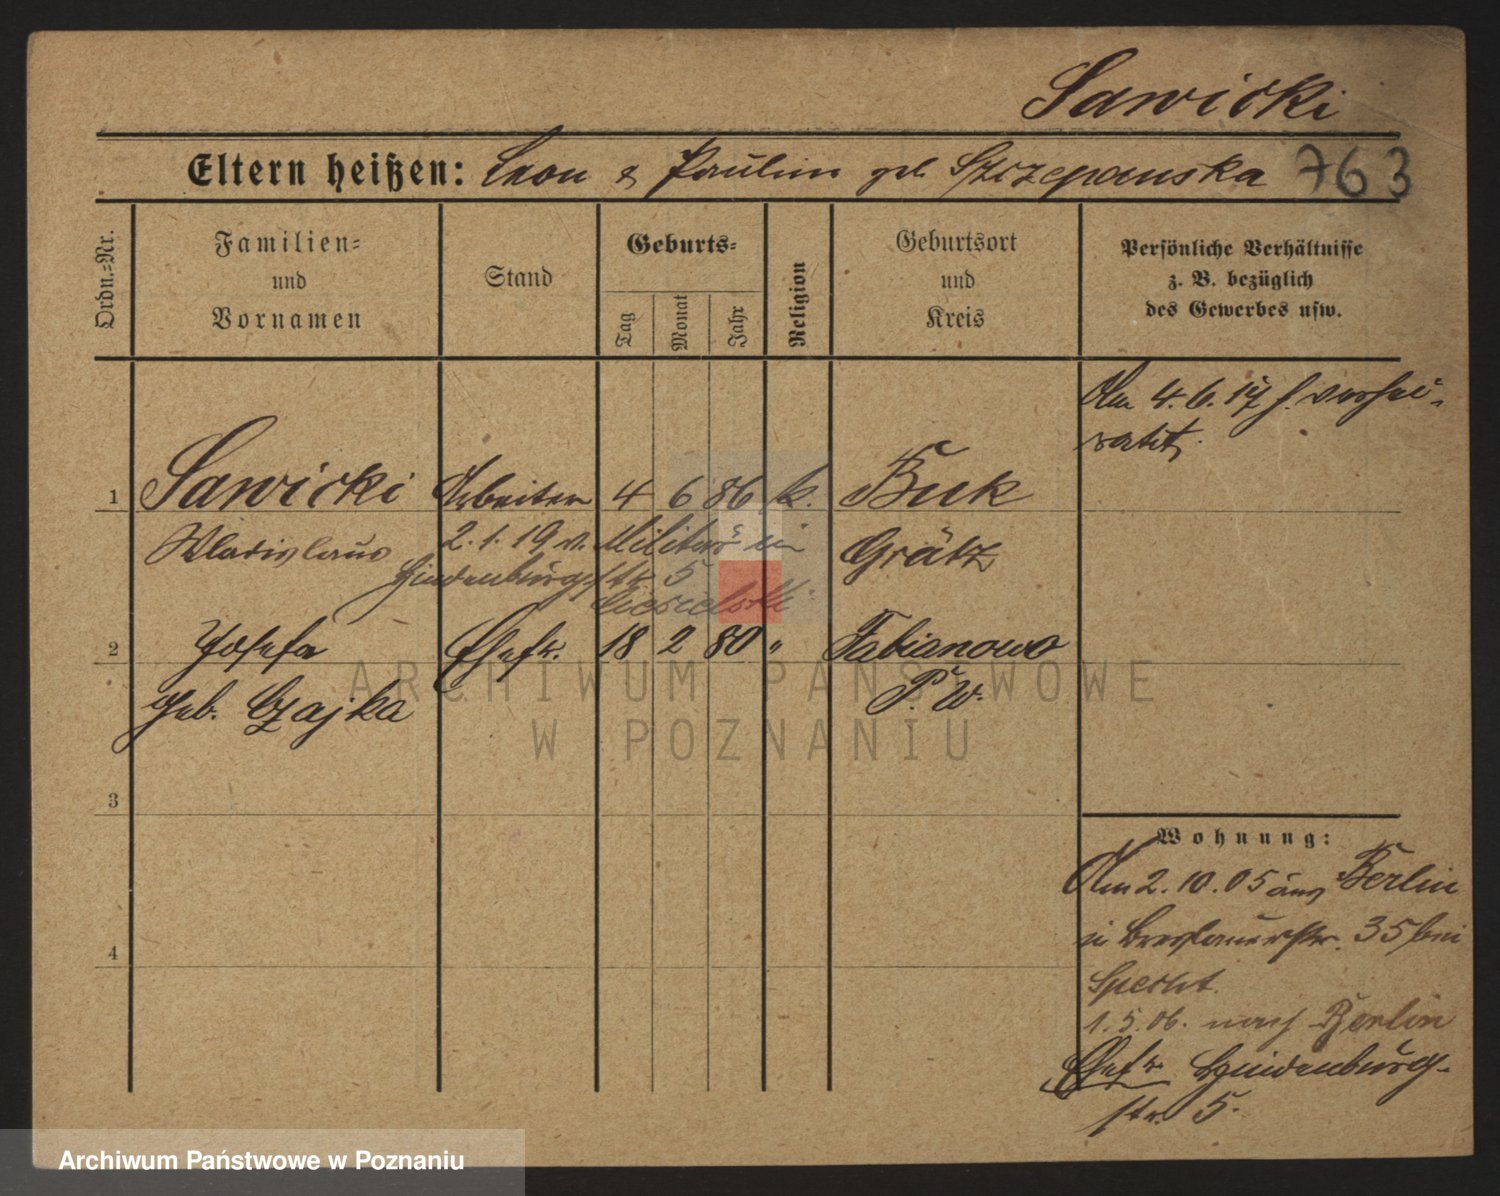 Sawicki
Eltern heißen: Leon & Paulin geb. Szczepanska 763
Ordn.-Nr.
Familien-
und
Vornamen
Stand
Geburts-
Tag
Monat
Jahr
Religion
Geburtsort
und
Kreis
Persönliche Verhältnisse
z. B. bezüglich
des Gewerbes usw.
Am 4.6.17 h. verhei-
ratet
1 Sawicki Arbeiter 4 6 86 k. Buk
Wladislaus 2.1.19 v. Militär in Grätz
Hindenburgstr 5
Ciesielski
2 Josefa Ehefr. 18 2 80 " Fabianowo
geb. Czajka P. W.
3
4
Wohnung:
Am 2.10.05 aus Berlin
in Breslauerstr. 35 bei
Specht
1.5.06. nach Berlin
Ehefr Hindenburg-
str. 5.
ARCHIWUM PAŃSTWOWE
W POZNANIU
Archiwum Państwowe w Poznaniu